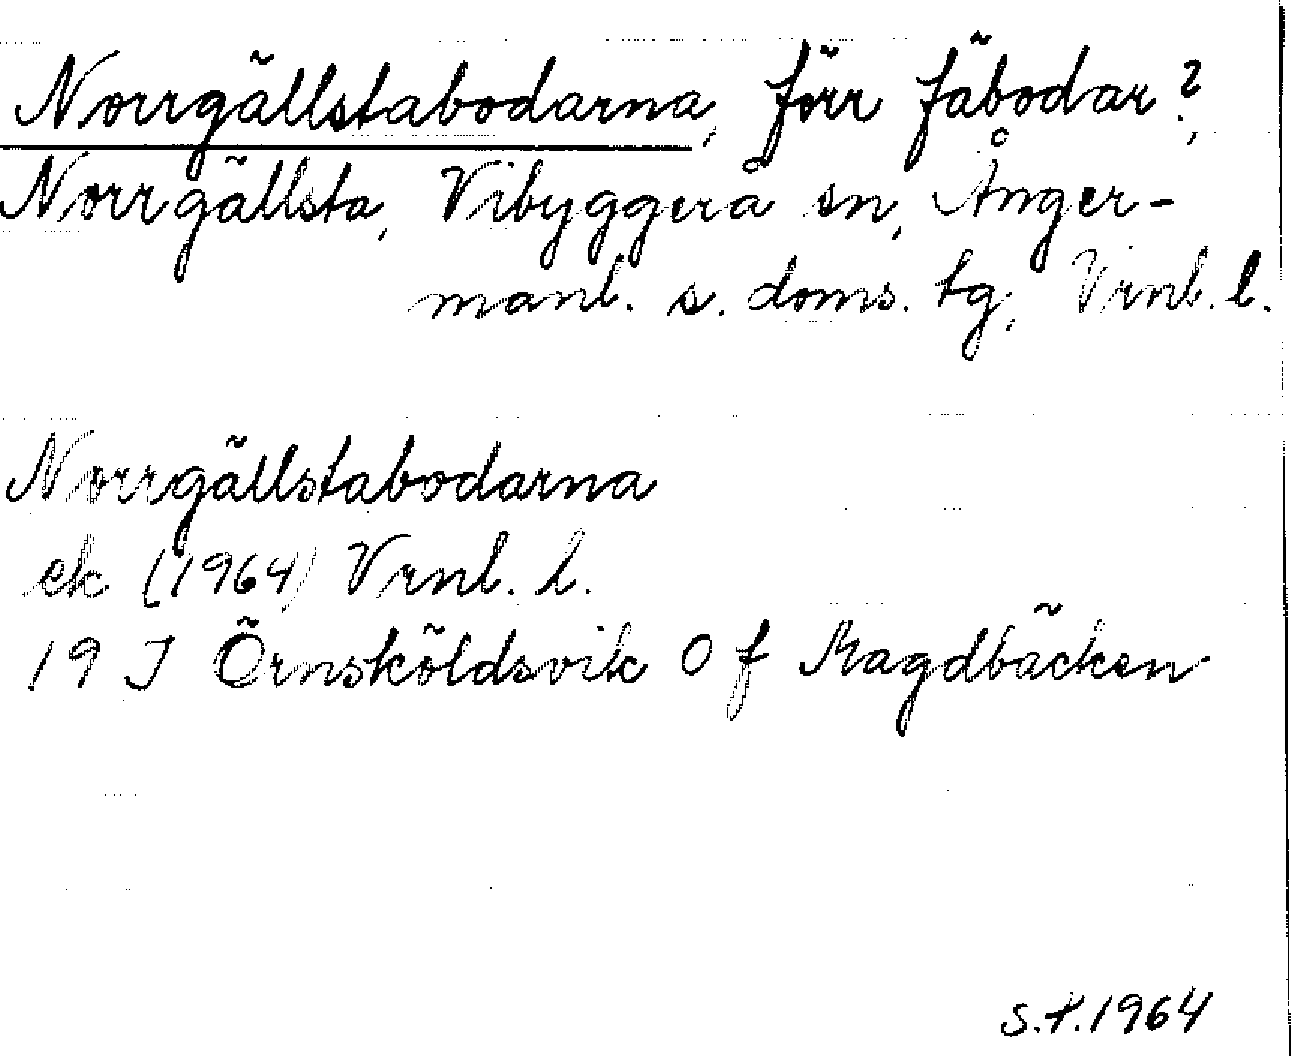 Norrgällstabodarna, förr fäbodar?,
Norrgällsta, Vibyggerå sn, Ånger-
manl. s. doms. tg, Vrnl. l.
Norrgällstabodarna
ek (1964) Vrnl. l.
19 J Örnsköldsvik O f Magdbäcken
S.F.1964